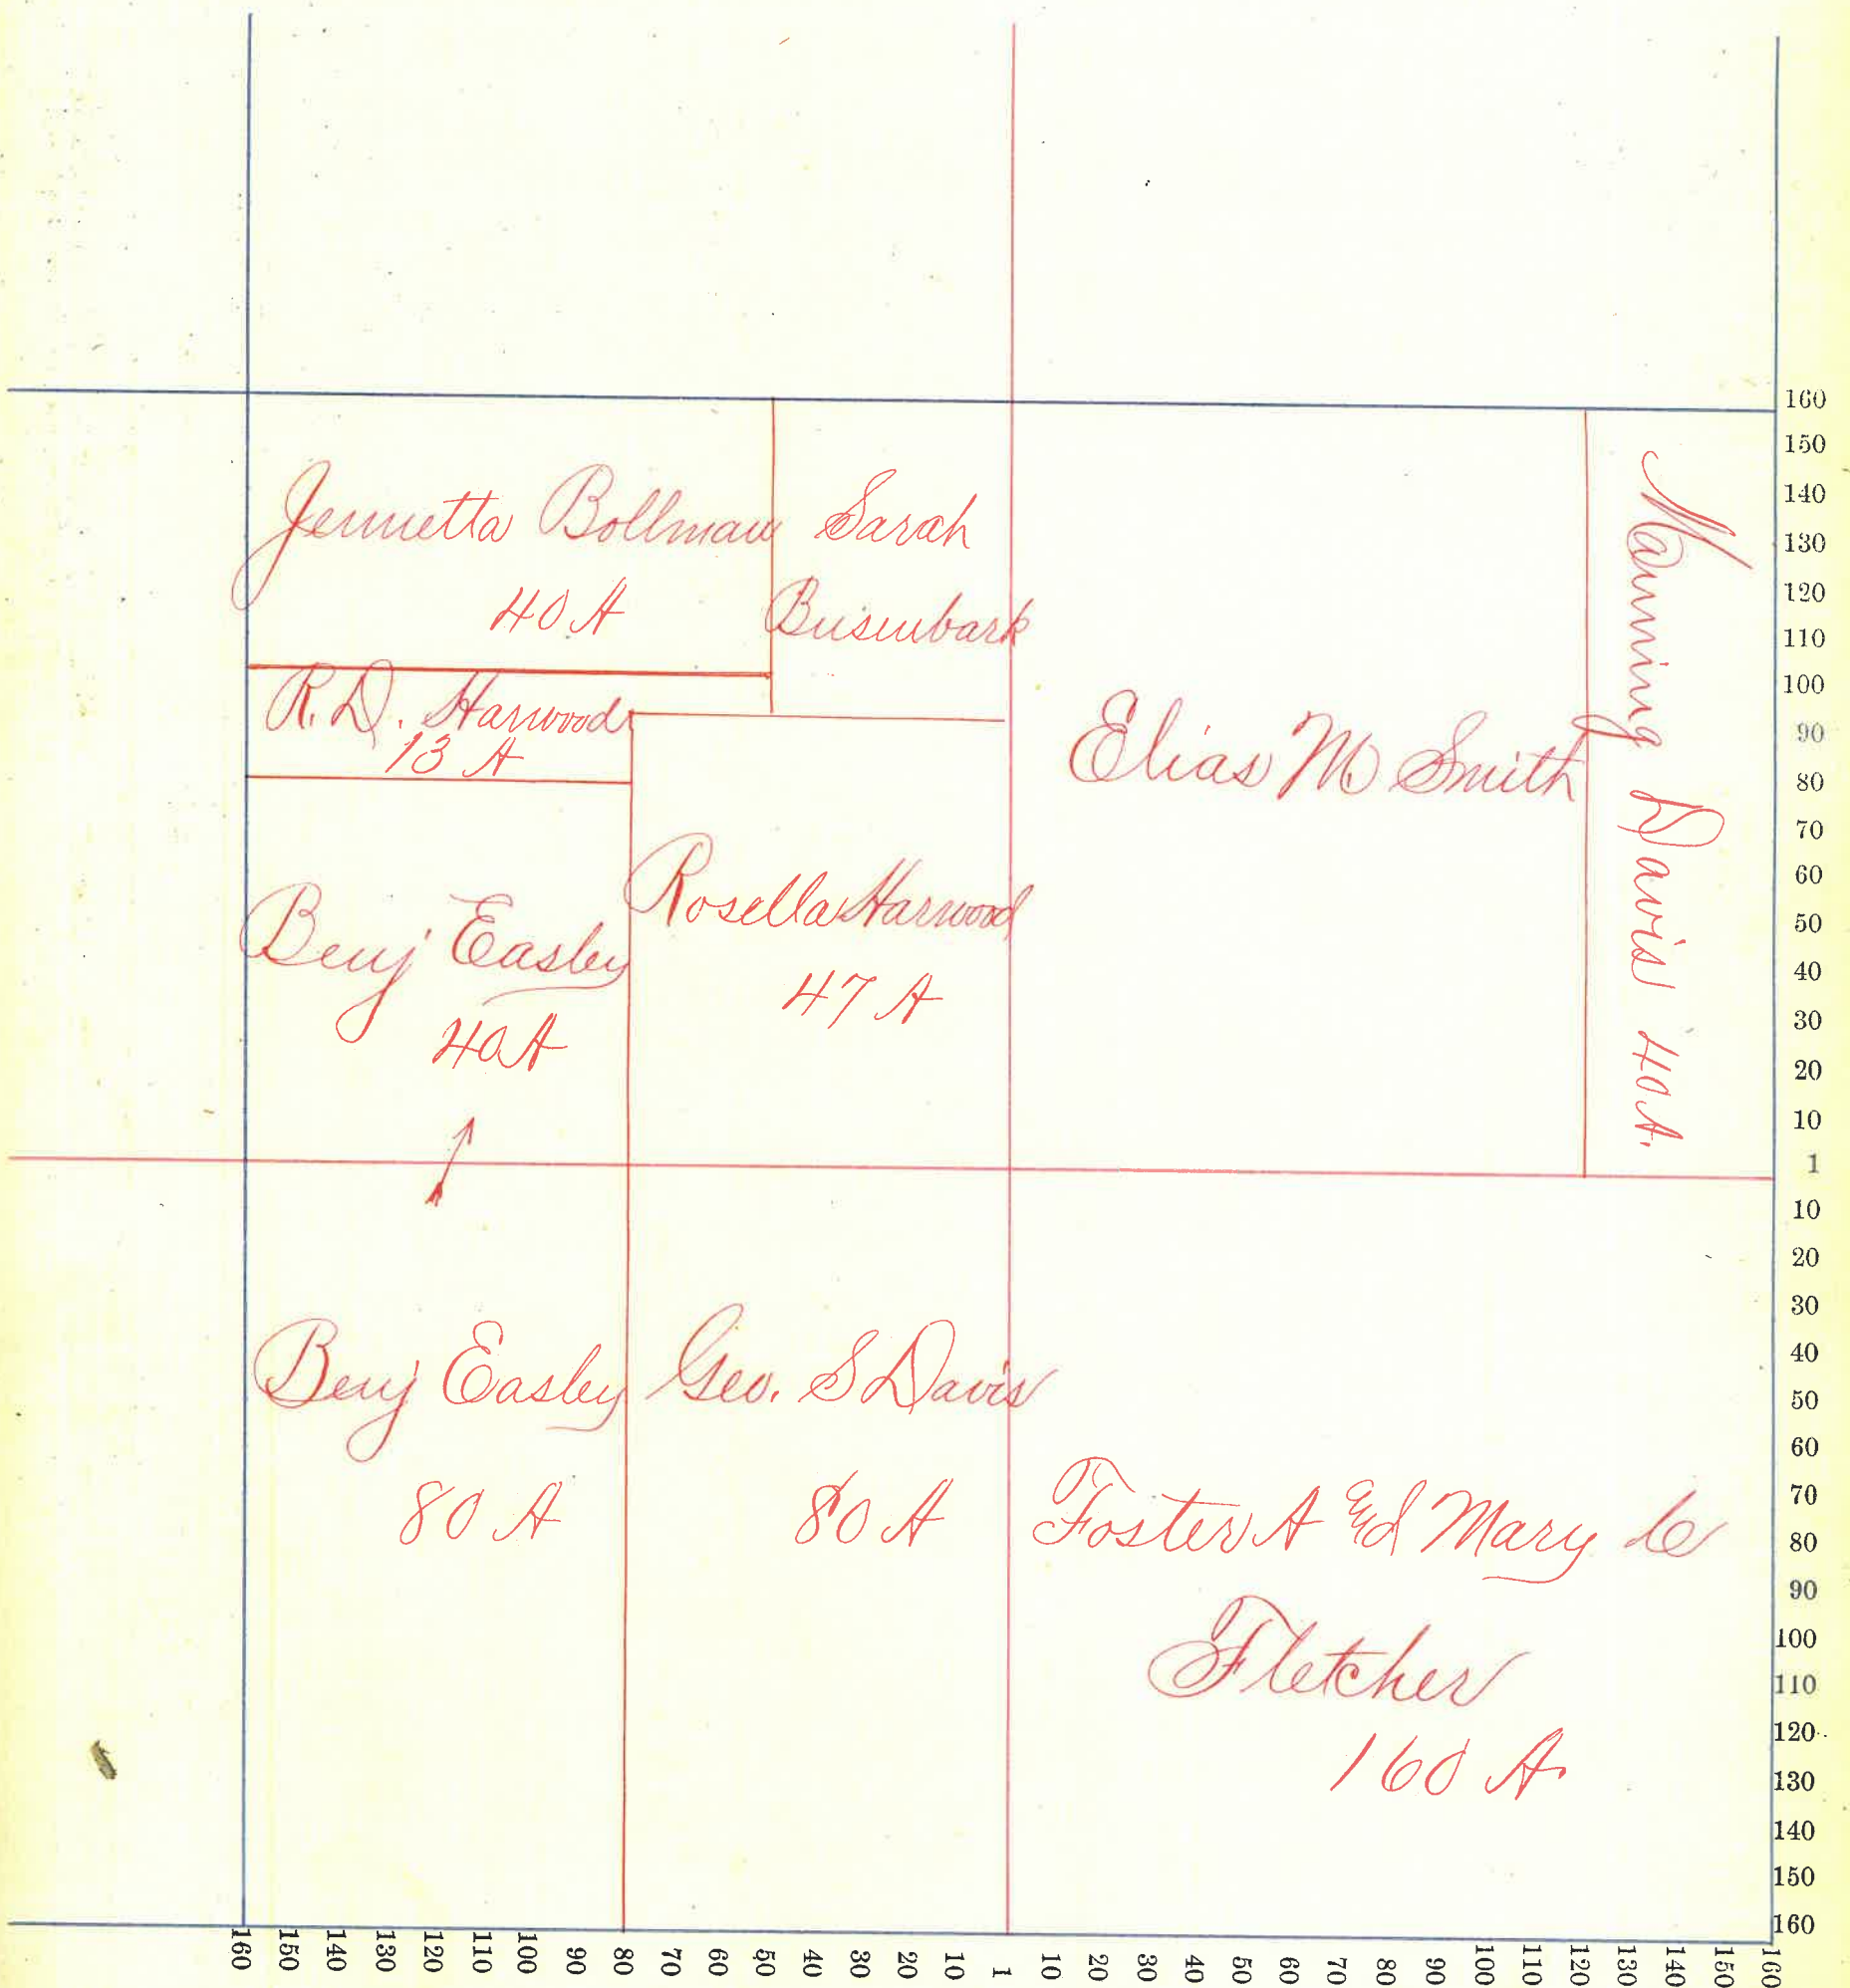 Jennetta Bollman
40 A
Sarah
Busenbark
R. D. Harwood
13 A
Elias M Smith
Manning Davis 40 A.
Benj Easley
40 A
Rosella Harwood
47 A
Benj Easley
80 A
Geo. S Davis
80 A
Foster A & Mary C
Fletcher
160 A
160
150
140
130
120
110
100
90
80
70
60
50
40
30
20
10
1
10
20
30
40
50
60
70
80
90
100
110
120
130
140
150
160
160 150 140 130 120 110 100 90 80 70 60 50 40 30 20 10 1 10 20 30 40 50 60 70 80 90 100 110 120 130 140 150 160